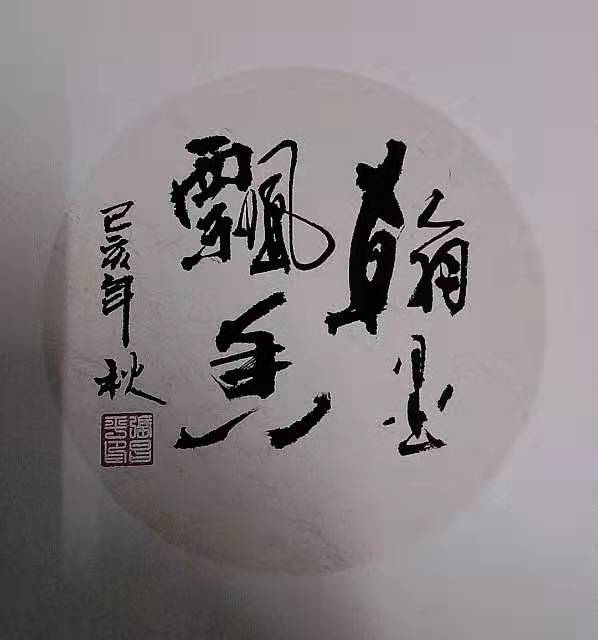 翰墨
飘香
己亥年秋